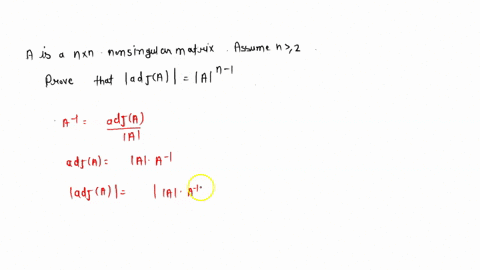 A is a n×n nonsingular matrix. Assume n⩾2.
Prove that |adj(A)| = |A|^{n-1}
A^{-1} = adj(A) / |A|
adj(A) = |A| · A^{-1}
|adj(A)| = | |A| · A^{-1}